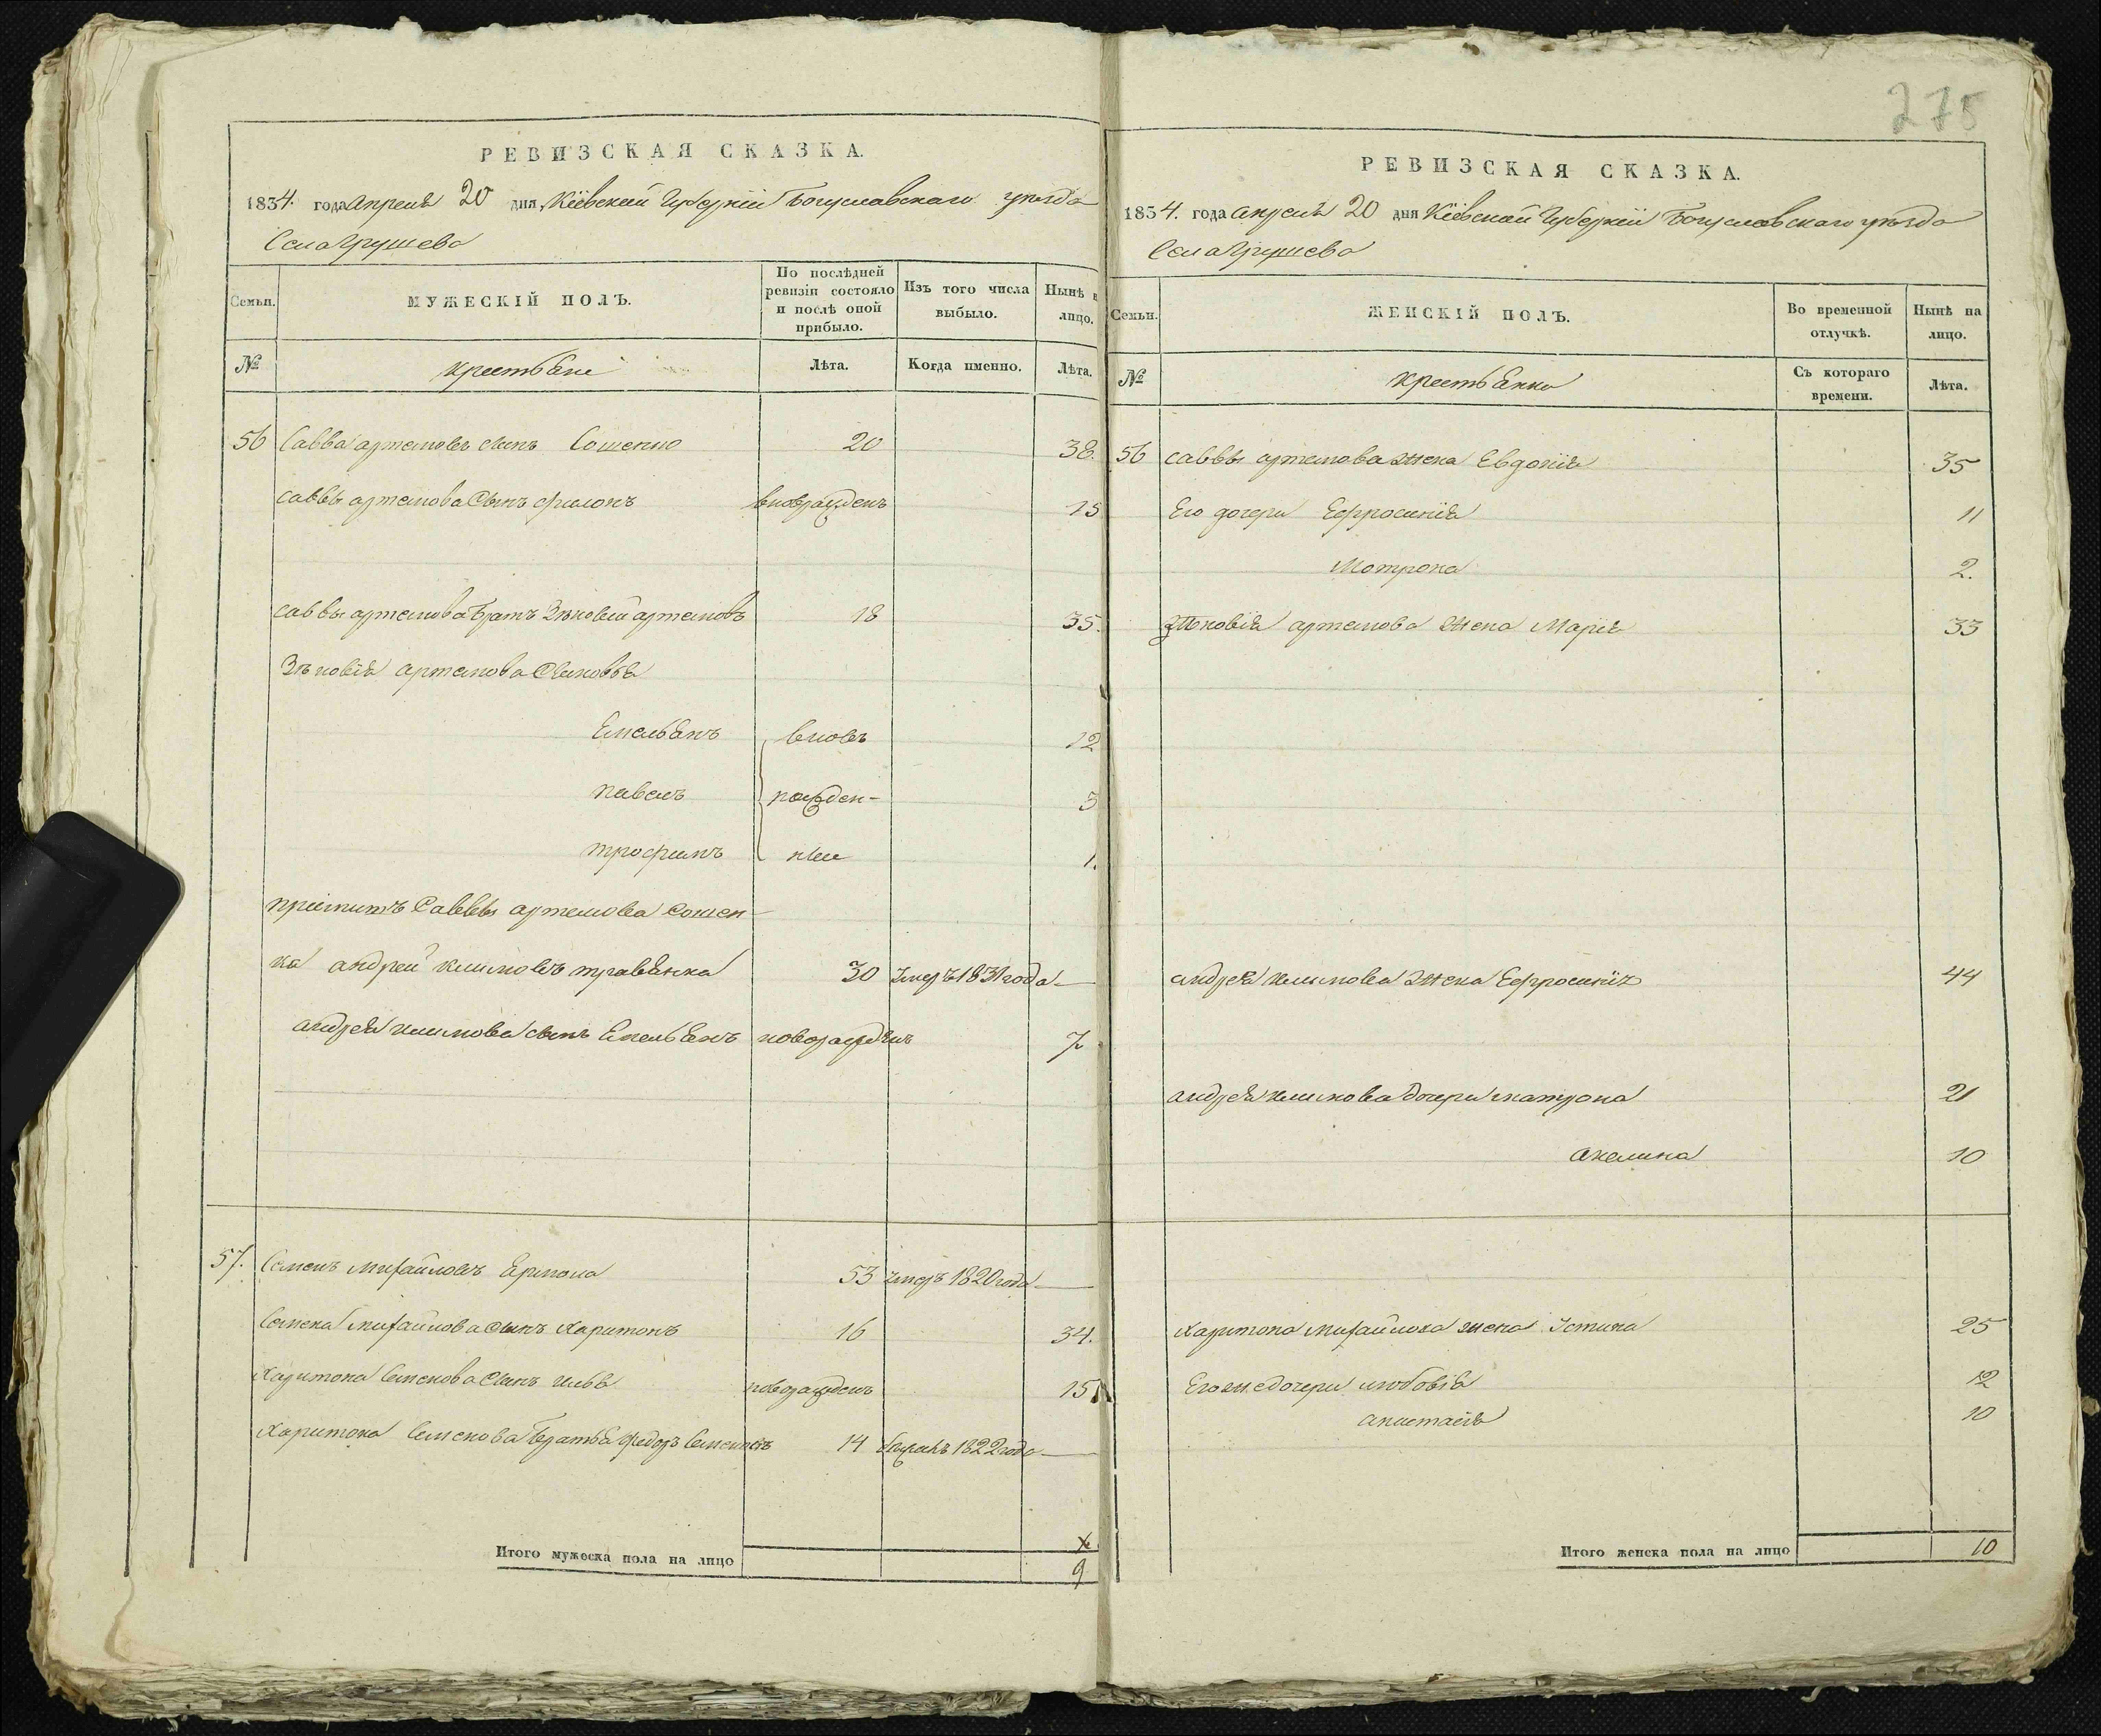 275
РЕВИЗСКАЯ СКАЗКА.
1834. года апреля 20 дня, Кіевской Губерніи Богуславскаго уѣзда
Села Грушева
Семьи.
МУЖЕСКІЙ ПОЛЪ.
По послѣдней ревизіи состояло и послѣ оной прибыло.
Изъ того числа выбыло.
Нынѣ н лицо.
№
крестьяне
Лѣта.
Когда именно.
Лѣта.
56 Савва артемовъ сынъ Сошенко 20 38.
саввы артемова Сынъ филонъ вновражденъ 15
саввы артемова Братъ Зѣновій артемовъ 18 35.
Зѣновія артемова Сыновья
Емельянъ вновь 12
павелъ рожден- 3
трофимъ ные 1.
пріимитъ Саввы артемова Сошен-
ка андрей климовъ травянка 30 умеръ 1831 года —
андрея климова сынъ Емельянъ новорожденъ 7
57. Семенъ михайловъ Ермола 53 умеръ 1820 года —
Семена михайлова сынъ Харитонъ 16 34.
Харитона Семенова Сынъ илья новорожденъ 15
Харитона Семенова Братья Федоръ Семеновъ 14 1822 года —
Итого мужеска пола на лицо
9
РЕВИЗСКАЯ СКАЗКА.
1834. года апреля 20 дня Кіевской Губерніи Богуславскаго уѣзда
Села Грушева
Семьи.
ЖЕНСКІЙ ПОЛЪ.
Во временной отлучкѣ.
Нынѣ на лицо.
№
крестьянки
Съ котораго времени.
Лѣта.
56 саввы артемова жена Евдокія 35
Его дочери Ефросинія 11
Мотрона 2.
зѣновія артемова жена Марія 33
андрея климова жена Ефросинія 44
андрея климова дочери матрона 21
акелина 10
Харитона михайлова жена Устина 25
Его же дочери любовія 12
анастасія 10
Итого женска пола на лицо 10